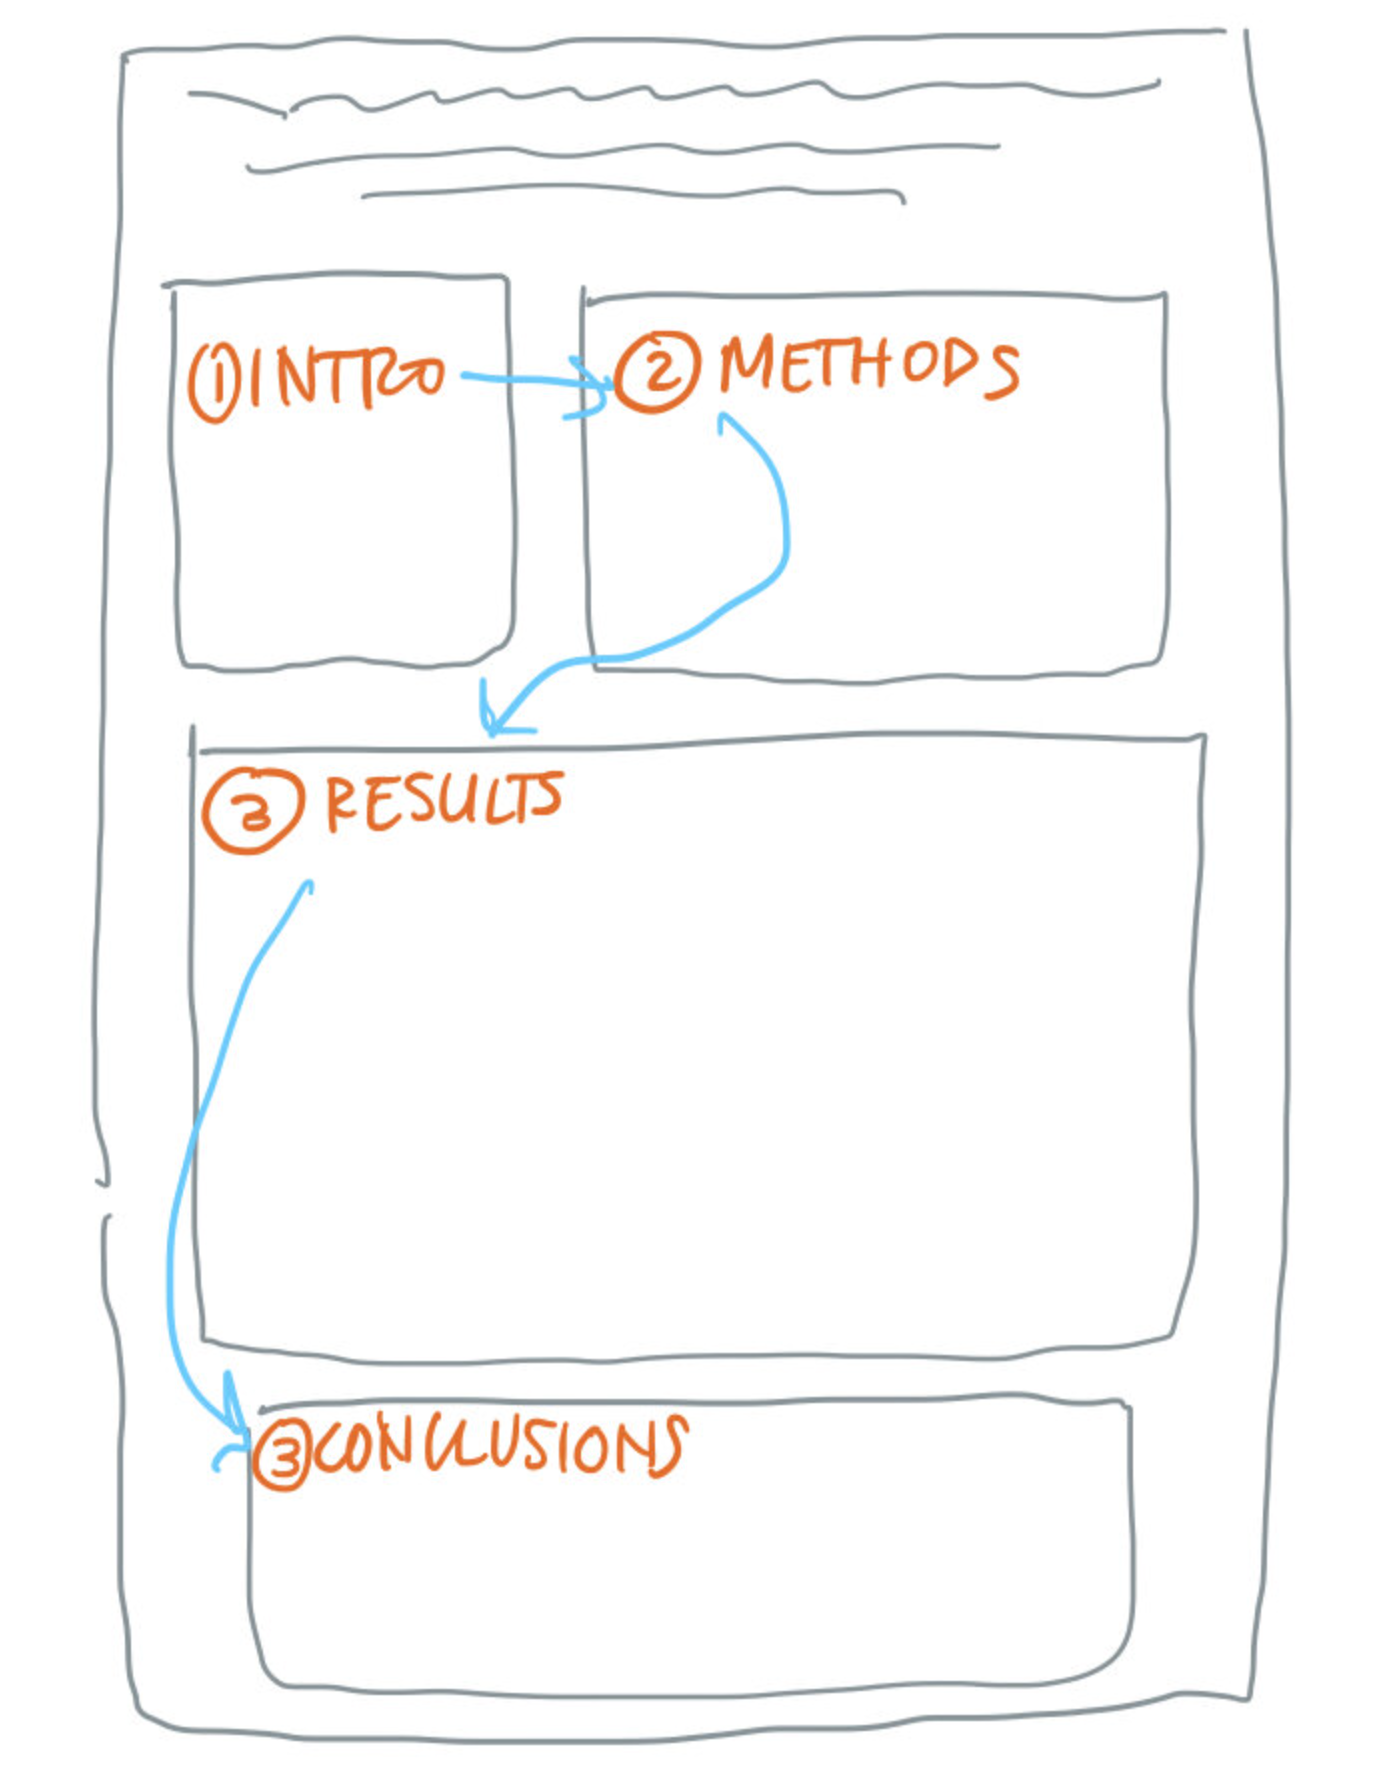 ① INTRO
② METHODS
③ RESULTS
③ CONCLUSIONS